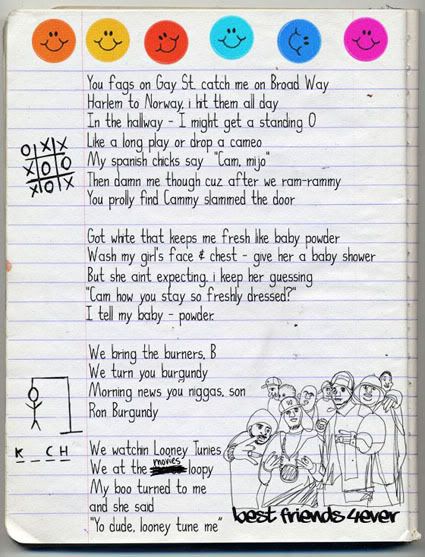 You fags on Gay St. catch me on Broad Way
Harlem to Norway, i hit them all day
In the hallway - I might get a standing O
Like a long play or drop a cameo
My spanish chicks say "Cam, mijo"
Then damn me though cuz after we ram-rammy
You prolly find Cammy slammed the door
O X X
X O O
X O X
Got white that keeps me fresh like baby powder
Wash my girl's face & chest - give her a baby shower
But she aint expecting, i keep her guessing
"Cam how you stay so freshly dressed?"
I tell my baby - powder.
We bring the burners, B
We turn you burgundy
Morning news you niggas, son
Ron Burgundy
K _ _ C H
We watchin Looney Tunies
We at the movies loopy
My boo turned to me
and she said
"Yo dude, looney tune me"
best friends 4ever